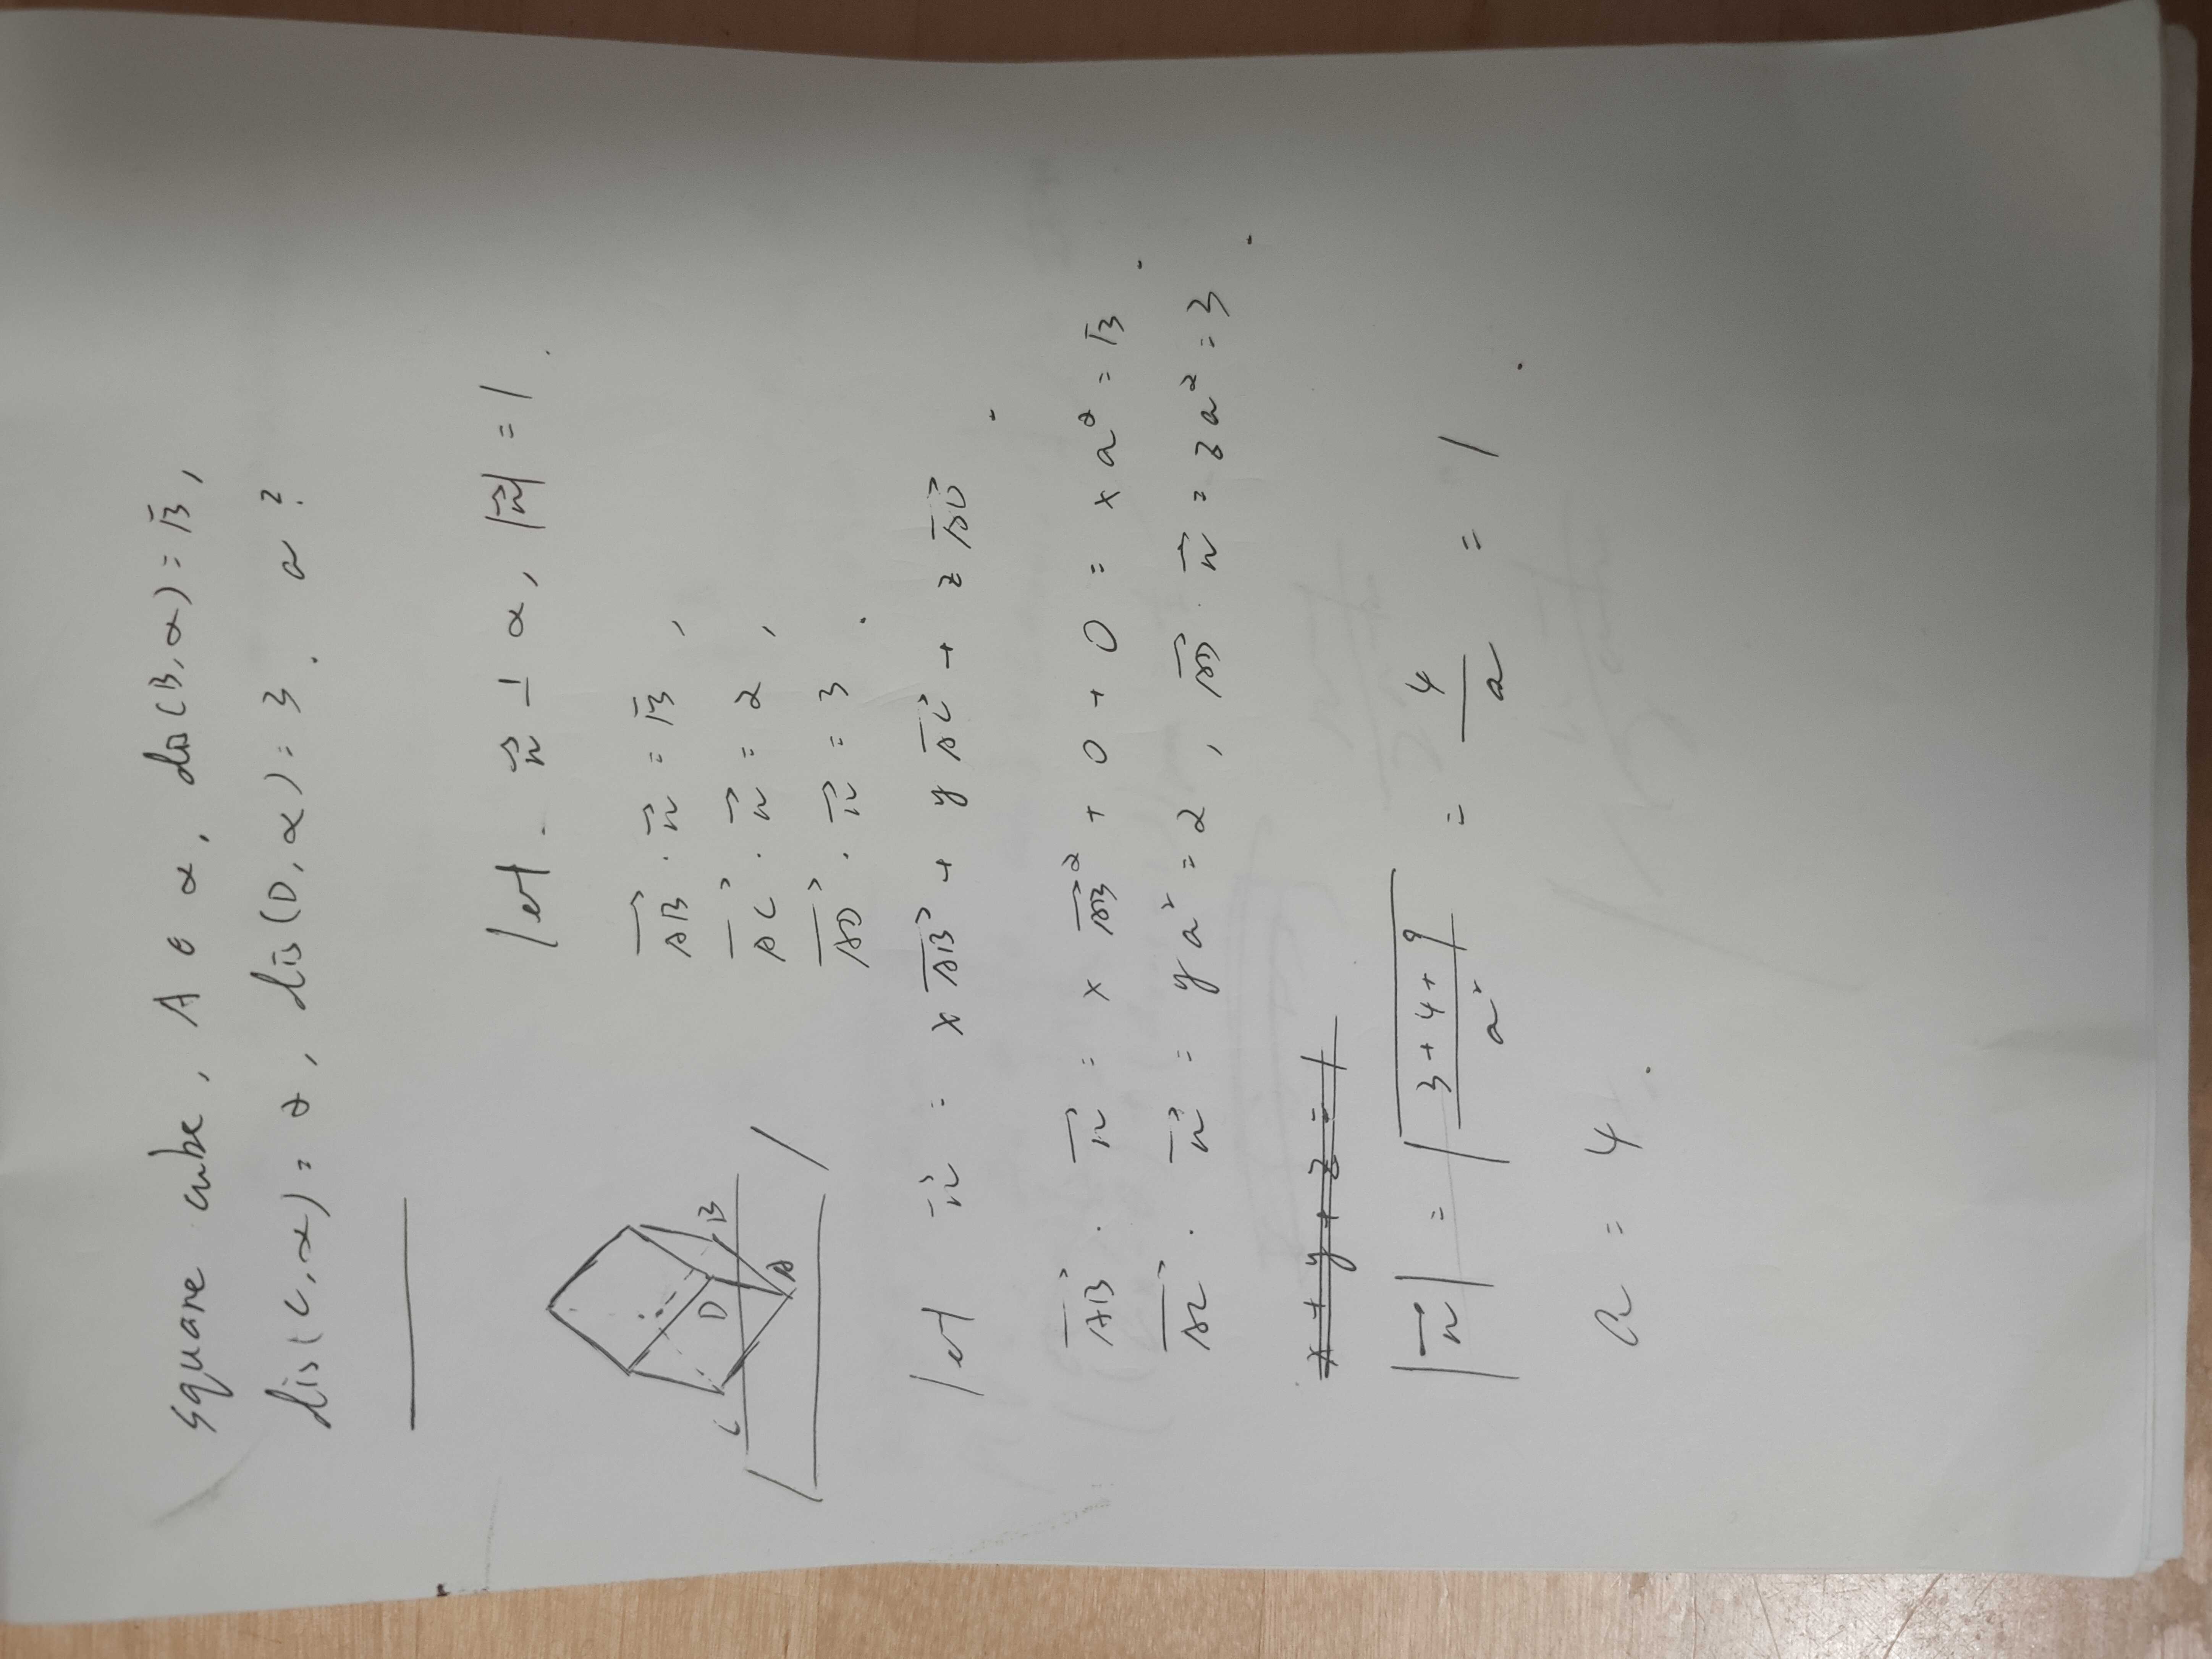 square cube, A ∈ α, dis(B,α)=√3,
dis(C,α)=2, dis(D,α)=3. a?
let. n⃗ ⊥ α, |n⃗|=1.
AB⃗ · n⃗ = √3,
AC⃗ · n⃗ = 2,
AD⃗ · n⃗ = 3.
C D B
A
let n⃗ = xAB⃗ + yAC⃗ + zAD⃗.
AB⃗ · n⃗ = xAB⃗² + 0 + 0 = xa² = √3.
AC⃗ · n⃗ = ya² = 2, AD⃗ · n⃗ = za² = 3.
x + y + z = 1
|n⃗| = √((3+4+9)/a²) = 4/a = 1.
a = 4.